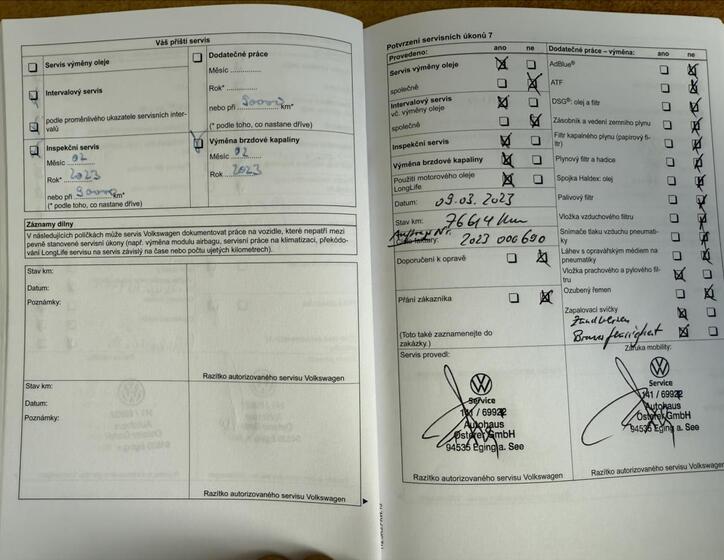 Váš příští servis
Servis výměny oleje
Intervalový servis
podle proměnlivého ukazatele servisních inter-
valů
Inspekční servis
Měsíc 02
Rok* 2023
nebo při 90000 km*
(* podle toho, co nastane dříve)
Dodatečné práce
Měsíc
Rok*
nebo při 90000 km*
(* podle toho, co nastane dříve)
Výměna brzdové kapaliny
Měsíc 02
Rok 2023
Záznamy dílny
V následujících políčkách může servis Volkswagen dokumentovat práce na vozidle, které nepatří mezi
pevně stanovené servisní úkony (např. výměna modulu airbagu, servisní práce na klimatizaci, překódo-
vání LongLife servisu na servis závislý na čase nebo počtu ujetých kilometrech).
Stav km:
Datum:
Poznámky:
Razítko autorizovaného servisu Volkswagen
Stav km:
Datum:
Poznámky:
Razítko autorizovaného servisu Volkswagen
Potvrzení servisních úkonů 7
Provedeno: ano ne
Servis výměny oleje
společně
Intervalový servis
vč. výměny oleje
společně
Inspekční servis
Výměna brzdové kapaliny
Použití motorového oleje
LongLife
Datum: 09.03.2023
Stav km: 76614 km
Auftrag Nr.
faktury: 2023 000690
Doporučení k opravě
Přání zákazníka
(Toto také zaznamenejte do
zakázky.)
Servis provedl:
Service
141 / 69922
Autohaus
Osterer GmbH
94535 Eging a. See
Razítko autorizovaného servisu Volkswagen
Dodatečné práce – výměna: ano ne
AdBlue®
ATF
DSG®: olej a filtr
Zásobník a vedení zemního plynu
Filtr kapalného plynu (papírový fil-
tr)
Plynový filtr a hadice
Spojka Haldex: olej
Palivový filtr
Vložka vzduchového filtru
Snímače tlaku vzduchu pneumati-
ky
Láhev s opravárenským médiem na
pneumatiky
Vložka prachového a pylového fil-
tru
Ozubený řemen
Zapalovací svíčky
Zündkerzen
Bremsflüssigkeit
Záruka mobility:
Service
141 / 69922
Autohaus
Osterer GmbH
94535 Eging a. See
Razítko autorizovaného servisu Volkswagen